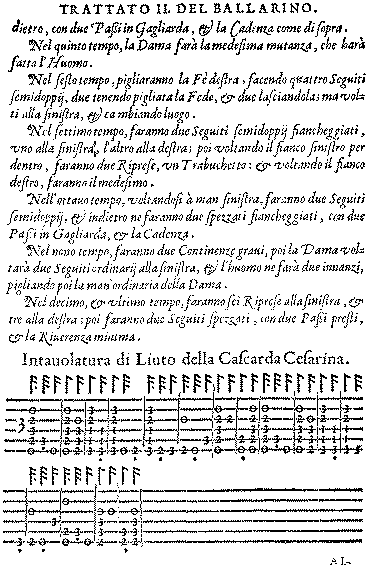 TRATTATO II. DEL BALLARINO.
dietro, con due Paßi in Gagliarda, & la Cadenza come di sopra.
Nel quinto tempo, la Dama farà la medesima mutanza, che harà
fatta l'Huomo.
Nel sesto tempo, pigliaranno la Fè destra, facendo quattro Seguiti
semidoppij, due tenendo pigliata la Fede, & due lasciandola; ma vol-
ti alla sinistra, & cambiando luogo.
Nel settimo tempo, faranno due Seguiti semidoppij fiancheggiati,
vno alla sinistra, l'altro alla destra; poi voltando il fianco sinistro per
dentro, faranno due Riprese, vn Trabuchetto: & voltando il fianco
destro, faranno il medesimo.
Nell'ottauo tempo, voltandosi à man sinistra, faranno due Seguiti
semidoppij, & indietro ne faranno due spezzati fiancheggiati, con due
Paßi in Gagliarda, & la Cadenza.
Nel nono tempo, faranno due Continenze graui, poi la Dama vol-
tarà due Seguiti ordinarij alla sinistra, & l'huomo ne farà due innanzi,
pigliando poi la man ordinaria della Dama.
Nel decimo, & vltimo tempo, faranno sei Riprese alla sinistra, &
tre alla destra; poi faranno due Seguiti spezzati, con due Paßi presti,
& la Riuerenza minima.
Intauolatura di Liuto della Cascarda Cesarina.
AL-